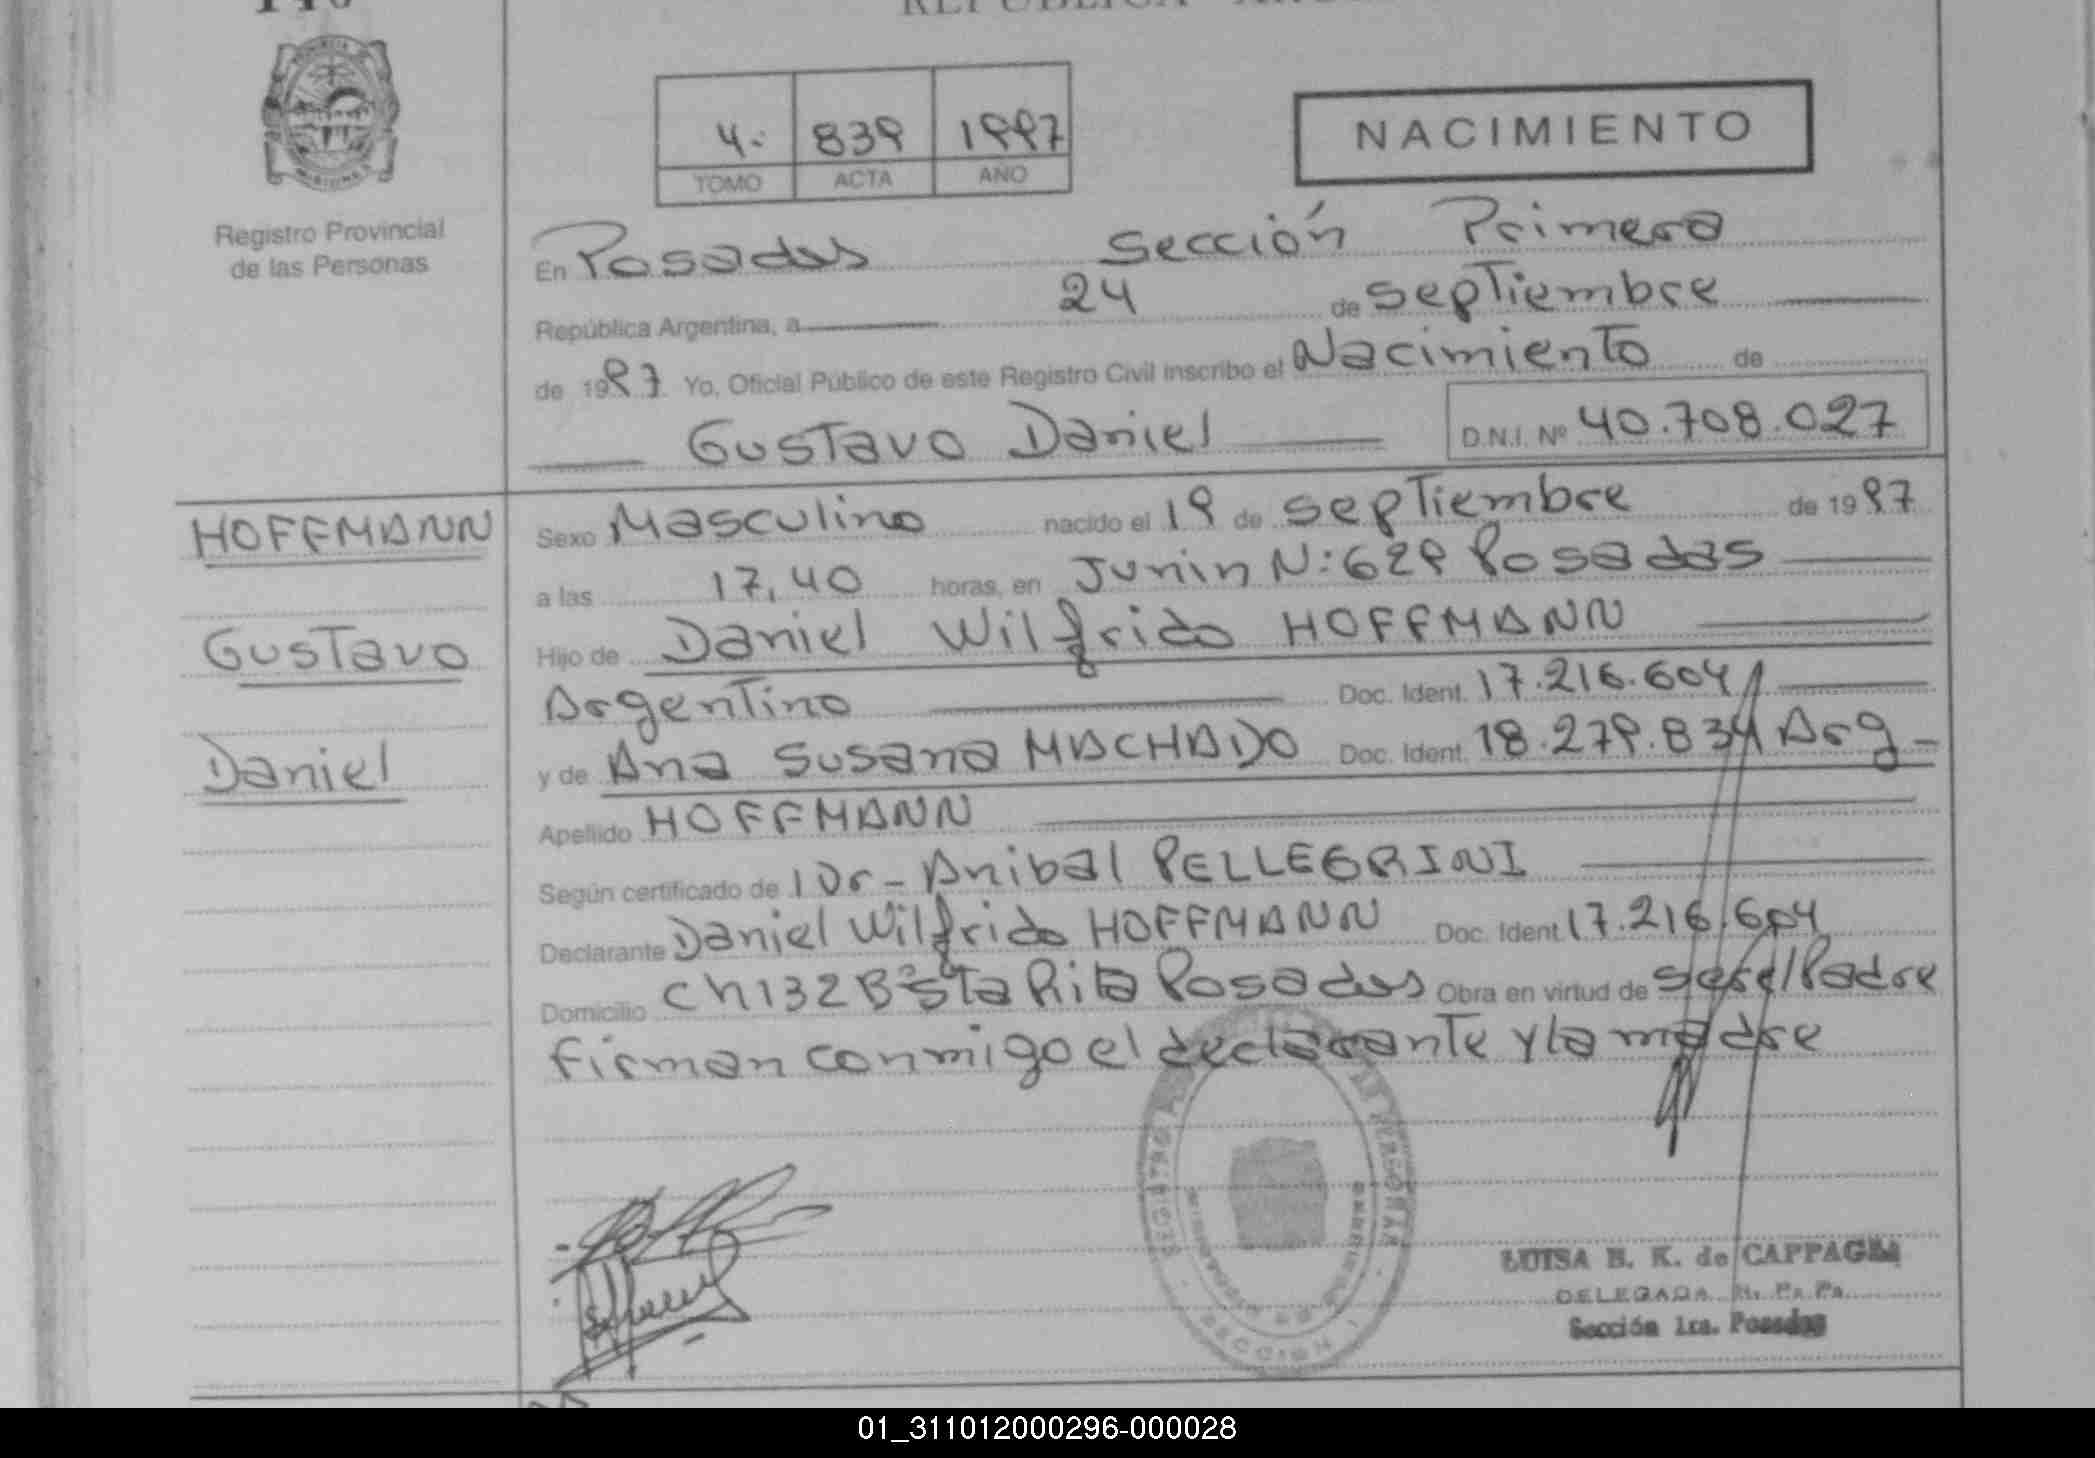 4.
839
1997
TOMO
ACTA
AÑO
NACIMIENTO
Registro Provincial
de las Personas
En Posadas Sección Primera
República Argentina, a 24 de septiembre
de 1997 Yo, Oficial Público de este Registro Civil inscribo el Nacimiento de
Gustavo Daniel D.N.I. Nº 40.708.027
HOFFMANN
Gustavo
Daniel
Sexo Masculino nacido el 19 de septiembre de 1997
a las 17,40 horas, en Junin N: 629 Posadas
Hijo de Daniel Wilfrido HOFFMANN
Argentino Doc. Ident. 17.216.604
y de Ana Susana MACHADO Doc. Ident. 18.279.834 Arg
Apellido HOFFMANN
Según certificado de Dr- Anibal PELLEGRINI
Declarante Daniel Wilfrido HOFFMANN Doc. Ident 17.216.604
Domicilio Ch 132 Bº Sta Rita Posadas Obra en virtud de ser el Padre
firman conmigo el declarante y la madre
LUISA B. K. de
DELEGADA
Sección 1ra. Posadas
01_311012000296-000028